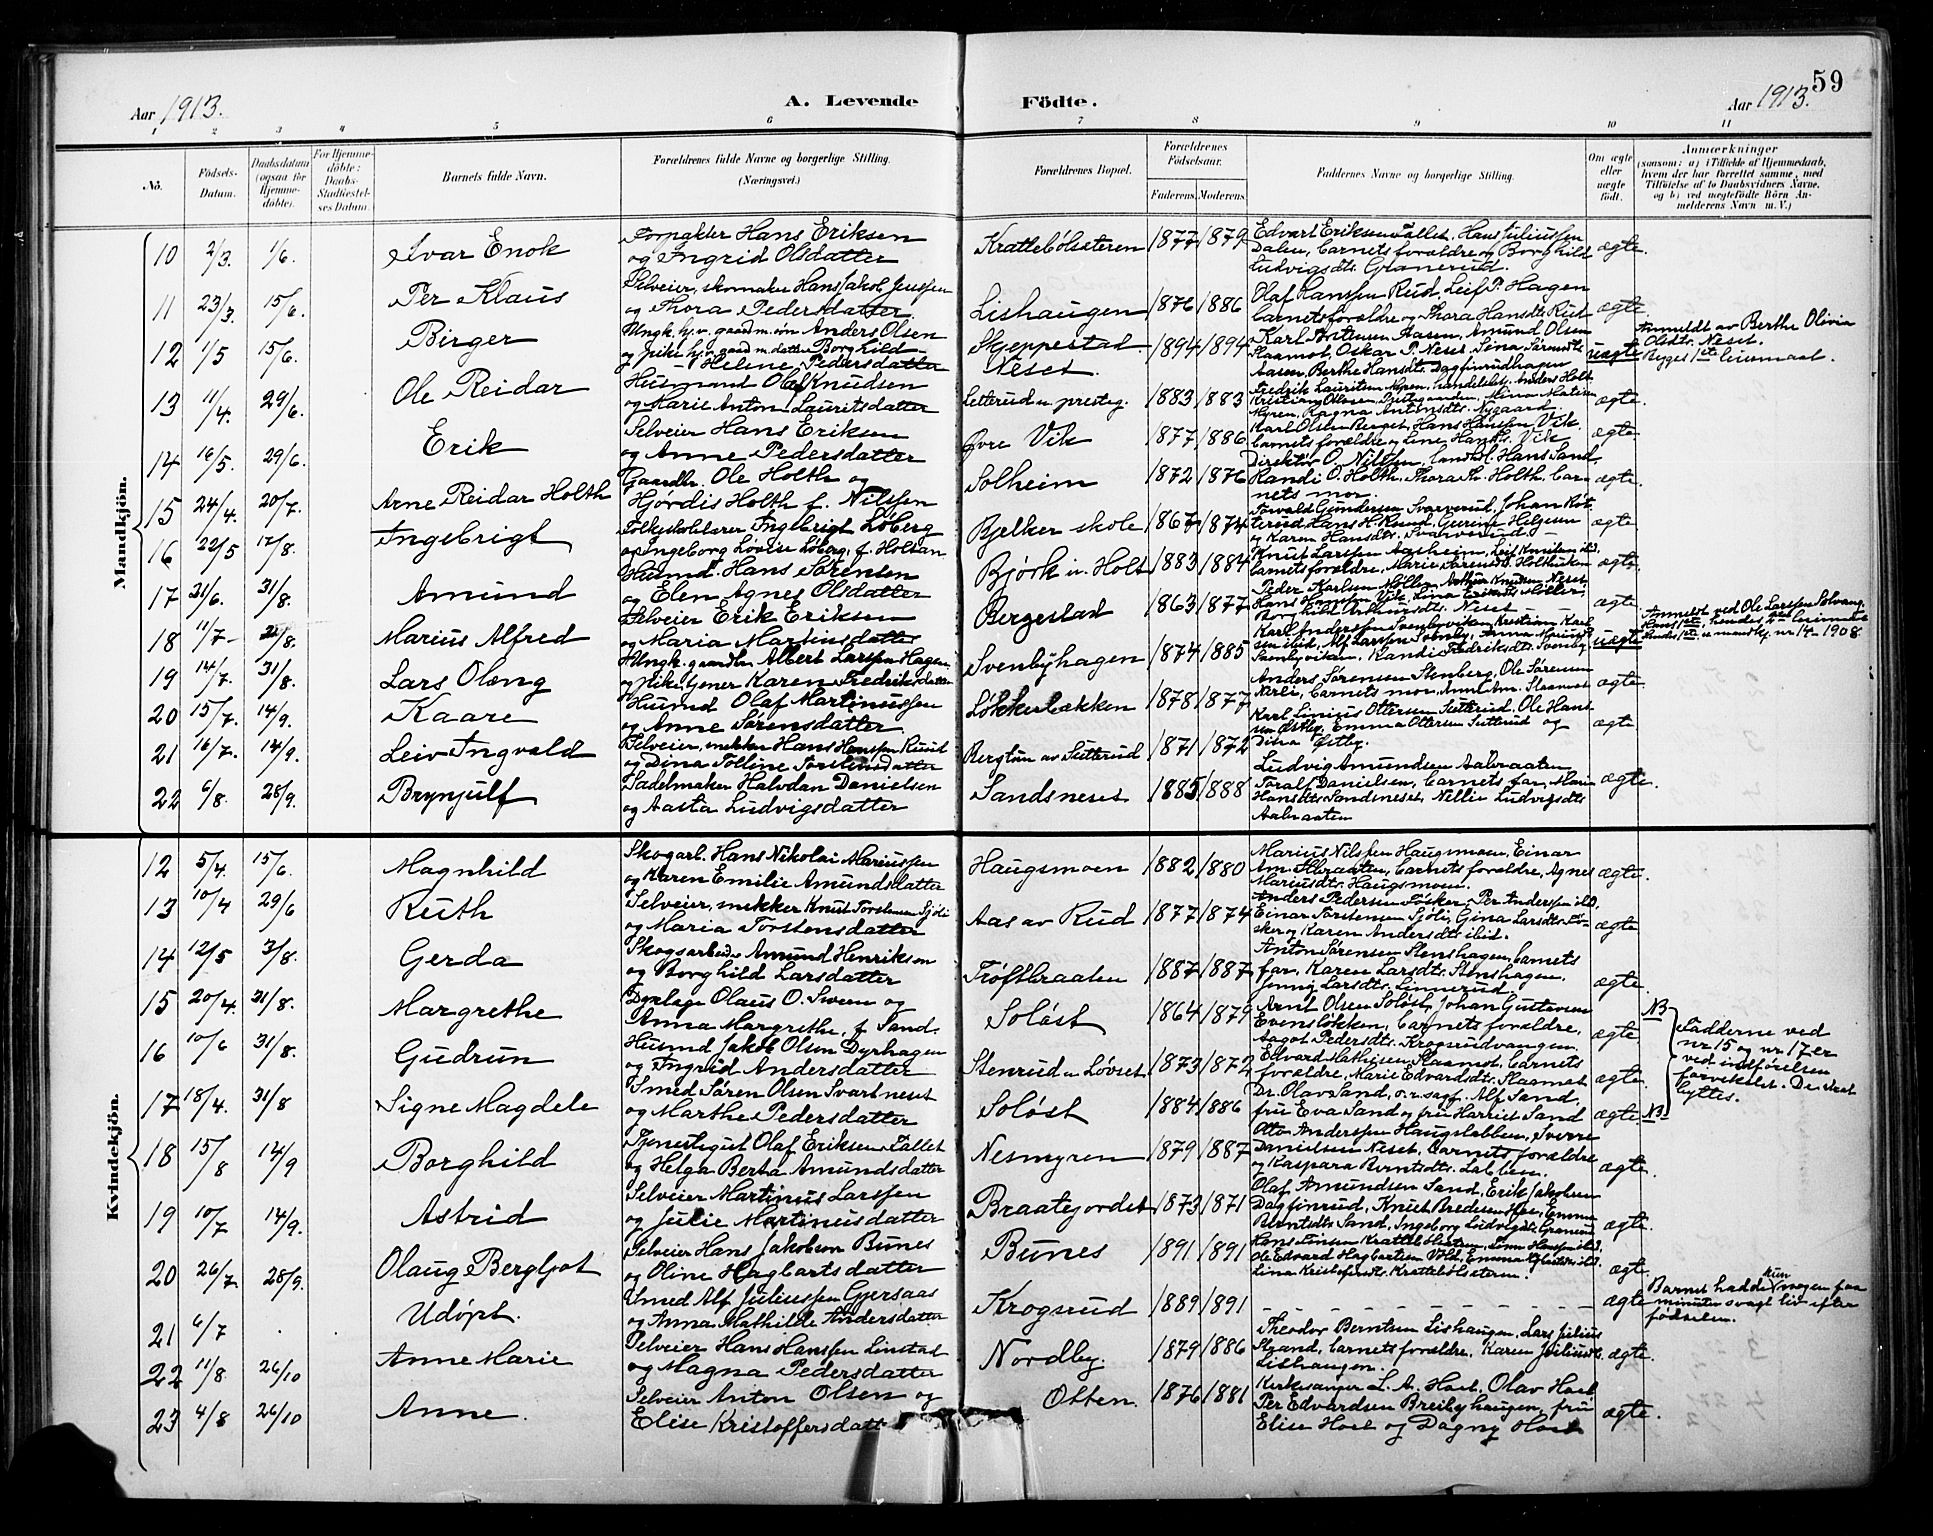 59
Aar 1913.
A. Levende Födte.
Aar 1913.
1 2 3 4 5 6 7 8 9 10 11
No.
Födsels-Datum.
Daabsdatum (ogsaa for Hjemmedöbte).
For Hjemmedöbte: Daabs-Stadfæstelses Datum.
Barnets fulde Navn.
Forældrenes fulde Navne og borgerlige Stilling. (Næringsvei.)
Forældrenes Bopæl.
Forældrenes Födselsaar.
Faderens. Moderens.
Faddernes Navne og borgerlige Stilling.
Om ægte eller uægte födt.
Anmærkninger
(saasom: a) i Tilfælde af Hjemmedaab, hvem der har forrettet samme, med Tilföielse af to Daabsvidners Navne, og b) ved uægtefödte Börn Anmelderens Navn m. V.)
Mandkjön.
10 2/3. 1/6. Ivar Enok Forpagter Hans Eriksen og Ingrid Olsdatter Krattebölsæteren 1877 1879 Edvart Eriksen Fallet, Hans Juliussen Dalen, barnets forældre og Borghild Ludvigsdtr. Granerud. ægte.
11 23/3. 15/6. Per Klaus Selveier, skomaker Hans Jakob Jenssen og Thora Pedersdatter. Lishaugen 1876 1886 Olaf Hanssen Rud, Leif P. Hagen barnets forældre og Thora Hansdtr. Rud ægte.
12 1/5 15/6. Birger Ungk. hj.v. gaardm.søn Anders Olsen og pike hj.v. gaardm.datter Borghild Helene Pedersdatter Skjeppestad. Neset. 1894 1894 Aasen, Amund Olsen Slaamot, Oskar P. Neset, Lina Aasen, Berthe Hansdtr. Dagfinrudhagen uægte Anmeldt av Berthe Olivia Olsdtr. Neset. Begges 1ste leiermaal.
13 11/4. 29/6. Ole Reidar Husmand Olaf Knudsen og Marie Anton Lauritsdatter Letterud u. presteg. 1883 1883 Fredrik Lauritsen Myren, Anders Holt Kristian Olsen, Myren, Ragna Antonsdtr. Nygaard. ægte.
14 16/5. 29/6. Erik Selveier Hans Eriksen og Anne Pedersdatter Øvre Vik 1877 1886 Karl Olsen Berget, Hans Hanssen Vik, barnets forældre og Line Hansdtr. Vik ægte.
15 24/4. 20/7. Arne Reidar Holth Gaardbr. Ole Holth og Hjørdis Holth f. Nilssen Solheim 1872 1876 Direktør O. Nilssen, Hans Sand, Randi O. Holth, Thora Holth, barnets mor. ægte.
16 22/5 17/8. Ingebrigt Folkeskolelærer Ingebrigt Løberg og Ingeborg Lovise Løberg, f. Holtan Bjelker skole 1867 1874 Torvald Gundersen Svarverud, Johan Rotterud, Hans H. Gurine Helgesen og Karen Hansdtr. Svarverud. ægte
17 21/6. 31/8. Amund Husmd. Hans Sørensen og Elen Agnes Olsdatter Bjørk u. Holt 1883 1884 Knut Larssen Aasheim, Leif Knutsen ibd., barnets forældre, Marie Sørensdtr. ægte.
18 11/7 31/8. Marius Alfred Selveier Erik Eriksen og Maria Martinsdatter Bergestad 1863 1877 Peder Karlsen Møllen, Arthur Knudsen Neset, Hans Hanssen Vik, Lina Eriksdtr. Møller, Neset ægte.
19 14/7. 31/8. Lars Olæng Ungk. gaardbr. Albert Larssen Hagen og pike, tjener Karen Fredriksdatter Svenbyhagen 1874 1885 Karl Anderssen Svenbyviken, Kristian Alf Larssen Svenby, Anna Svenbyviken, Randi Fredriksdtr. Svenby uægte Anmeldt ved Ole Larssen Solvang. Hans 1ste, hendes 2det leiermaal 1ste u. mandkj. nr 14 - 1908
20 15/7. 14/9. Kaare Husmd Olaf Martinussen og Anne Sørensdatter Løkkerbækken 1878 1877 Anders Sørensen Stenberg, Ole Sørensen barnets mor, Slaamot ægte.
21 16/7. 14/9. Leiv Ingvald Selveier, mekker Hans Hanssen Ruud og Dina Polline Torstensdatter Bergtun av Sætterud 1871 1872 Karl Linnæus Ottersen Sætterud, Ole Hanssen Østby, Emma Ottersen Sætterud og Dina Østby. ægte
22 6/8. 28/9. Brynjulf Sadelmaker Halvdan Danielsen og Aasta Ludvigsdatter Sandsneset 1885 1888 Ludvig Amundsen Aabraaten Toralf Danielsen, barnets far, Marie Hansdtr. Sandsneset, Nellie Ludvigsdtr. Aabraaten ægte.
Kvindekjön.
12 5/4. 15/6. Magnhild Skogarb. Hans Nikolai Mariussen og Karen Emilie Amundsdatter Haugsmoen 1882 1880 Marius Nilssen Haugsmoen, Einar Am. barnets forældre, Agnes Mariusdtr. Haugsmoen. ægte.
13 10/4 29/6 Ruth Selveier, mekker Knut Torstensen Sjøli og Maria Torstensdatter Aas av Rud 1877 1874 Anders Pedersen Løsker, Per Anderssen ibd., Einar Torstensen Sjøli, Gina Larsdtr. Løsker og Karen Andersdtr. ibid. ægte.
14 12/5 3/8. Gerda Skogsarbeider Amund Henriksen og Borghild Larsdatter Trøftbraaten 1887 1887 Anton Sørensen Stenshagen, barnets far, Karen Larsdtr. Stenshagen, Jenny Larsdtr. Linnerud. ægte.
15 20/4. 31/8. Margrethe Dyrlæge Olaus O. Sveen og Anna Margrethe, f. Sand. Soløst 1864 1879 Arnt Olsen Soløst, Johan Gustavsen Evensløkken, barnets forældre, Aagot Pedersdtr. Krogsrudvangen. ægte NB
16 10/6 31/8. Gudrun Husmd Jakob Olsen Dyrhagen og Ingrid Andersdatter Stenrud u. Løvset 1873 1872 Edvard Mathisen Slaamot, barnets forældre, Marie Edvardsdtr. Slaamot ægte. Fadderne ved nr 15 og nr. 17 er ved indførelsen forvekslet. De skal byttes.
17 18/4. 31/8 Signe Magdele Smed Søren Olsen Svartneset og Marthe Pedersdatter Soløst 1884 1886 Dr. Olav Sand, o.r.sagf. Alf Sand, fru Eva Sand og fru Harriet Sand ægte NB
18 15/8 14/9 Borghild Tjenestegut Olaf Eriksen Fallet og Helga Berta Amundsdatter Nesmyren 1879 1887 Otto Anderssen Haugslabben, Sverre Danielsen Neset, barnets forældre og Kaspara Berntsdtr. Labben. ægte.
19 10/7 14/9. Astrid Selveier Martinus Larssen og Julie Martinusdatter Braatejordet 1873 1871 Olaf Amundsen Sand, Erik Jakobsen Dagfinrud, Knut Bredesen Moe, Emma Berntsdtr. Sand, Ingeborg Ludvigsdtr. Granerud ægte.
20 26/7. 28/9. Olaug Bergljot Selveier Hans Jakobsen Bunes og Oline Hagbartsdatter Bunes 1891 1891 Krattebölsæteren, Ole Edvard Hagbartsen Vold, Emma Lina Kristofersdtr. Krattebölsæteren. ægte.
21 6/7 . Udøpt. Smed Alf Juliussen Gjersaas og Anna Mathilde Andersdatter Krogsrud 1889 1891 ægte Barnet hadde kun nogen faa minuters svagt liv efter fødselen.
22 11/8. 26/10 Anne Marie Selveier Hans Hanssen Linstad og Magna Pedersdatter Nordby. 1879 1886 Theodor Berntsen Lishaugen, Lars Julius Strand, barnets forældre, Karen Juliusdtr. Lishaugen. ægte.
23 4/8 26/10 Anne. Selveier Anton Olsen og Elise Kristoffersdatt Otten. 1876 1881 Kirkesanger L. A. Hoel, Olav Hoel Per Edvardsen Breibyhaugen, fru Elise Hoel og Dagny Hoel ægte.